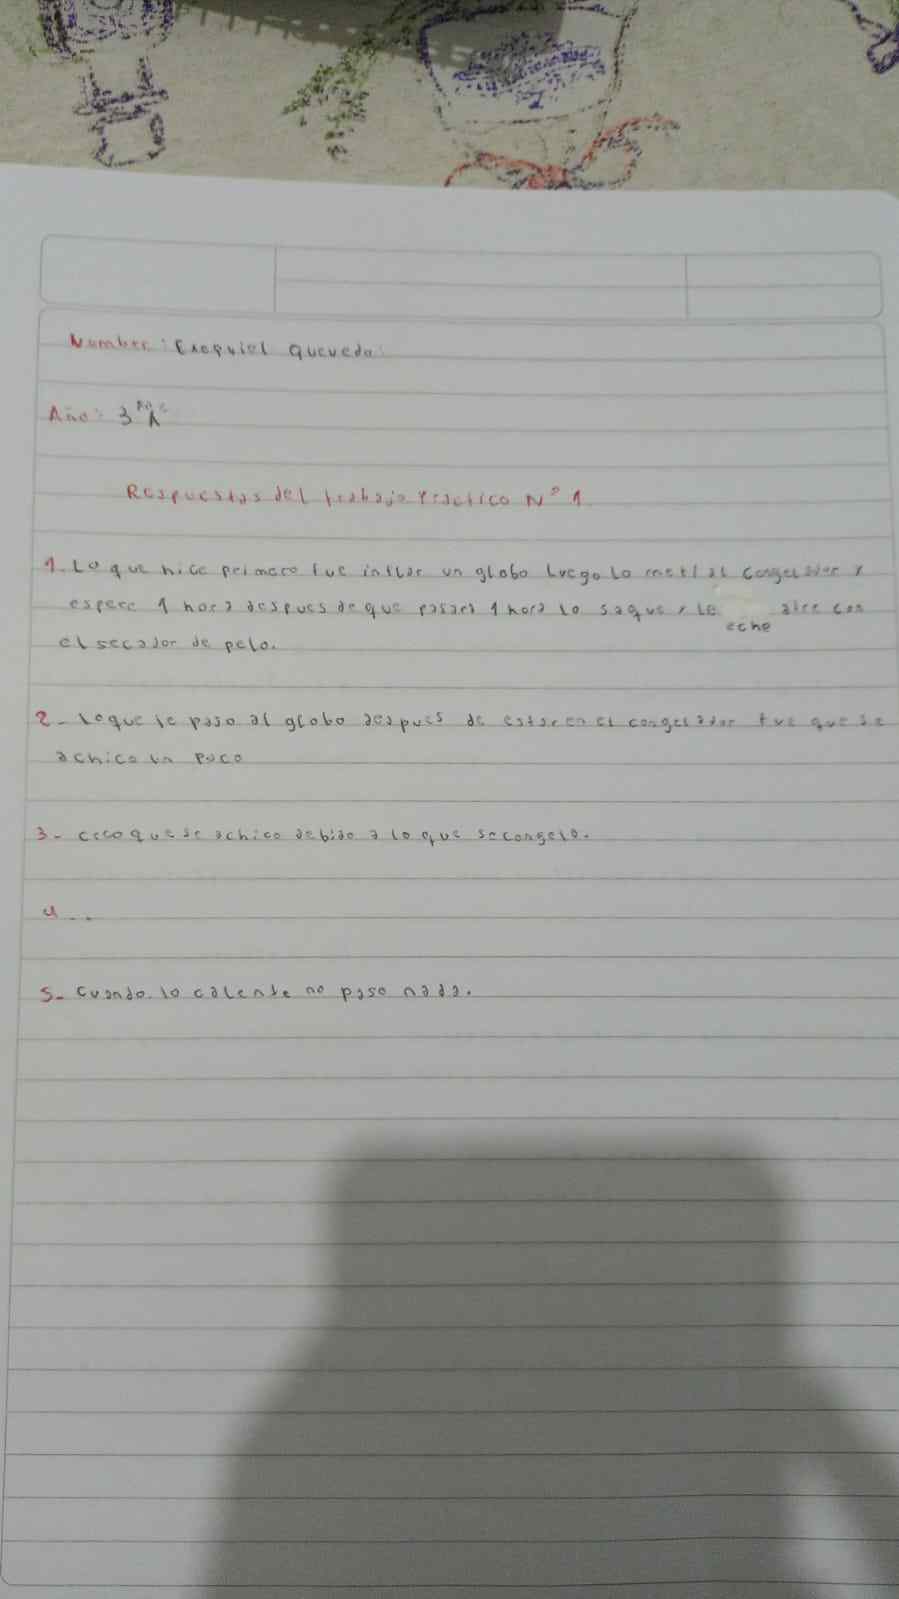 Number: Exequiel Quevedo.
Año: 3 A
Respuestas del trabajo Practico N° 1
1. Lo que hice primero fue inflar un globo luego lo meti al congelador y
espere 1 hora despues de que pasara 1 hora lo saque y le eche aire con
el secador de pelo.
2- lo que le paso al globo despues de estar en el congelador fue que se
achico un poco
3- creo que se achico debido a lo que se congelo.
4- .
5- Cuando lo calente no paso nada.